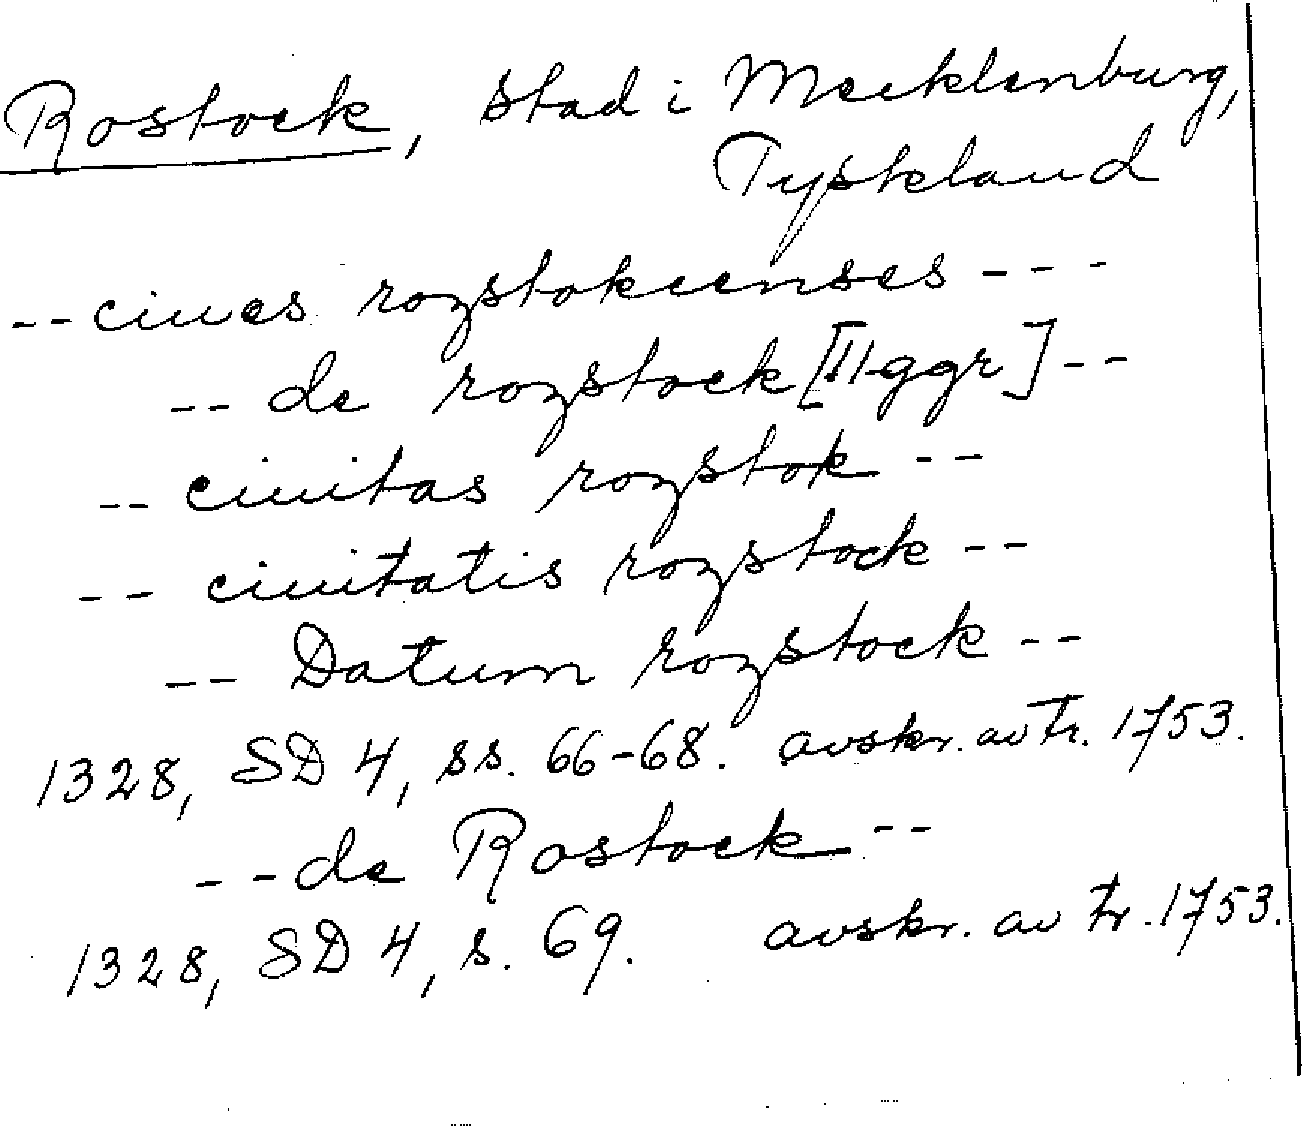 Rostock, stad i Mecklenburg,
Tyskland
-- ciues rozstokcenses ---
-- de rozstock [II ggr] --
-- ciuitas rozstok --
-- ciuitatis rozstock --
-- Datum rozstock --
1328, SD 4, ss. 66-68. avskr. av tr. 1753.
-- de Rostock --
1328, SD 4, s. 69. avskr. av tr. 1753.